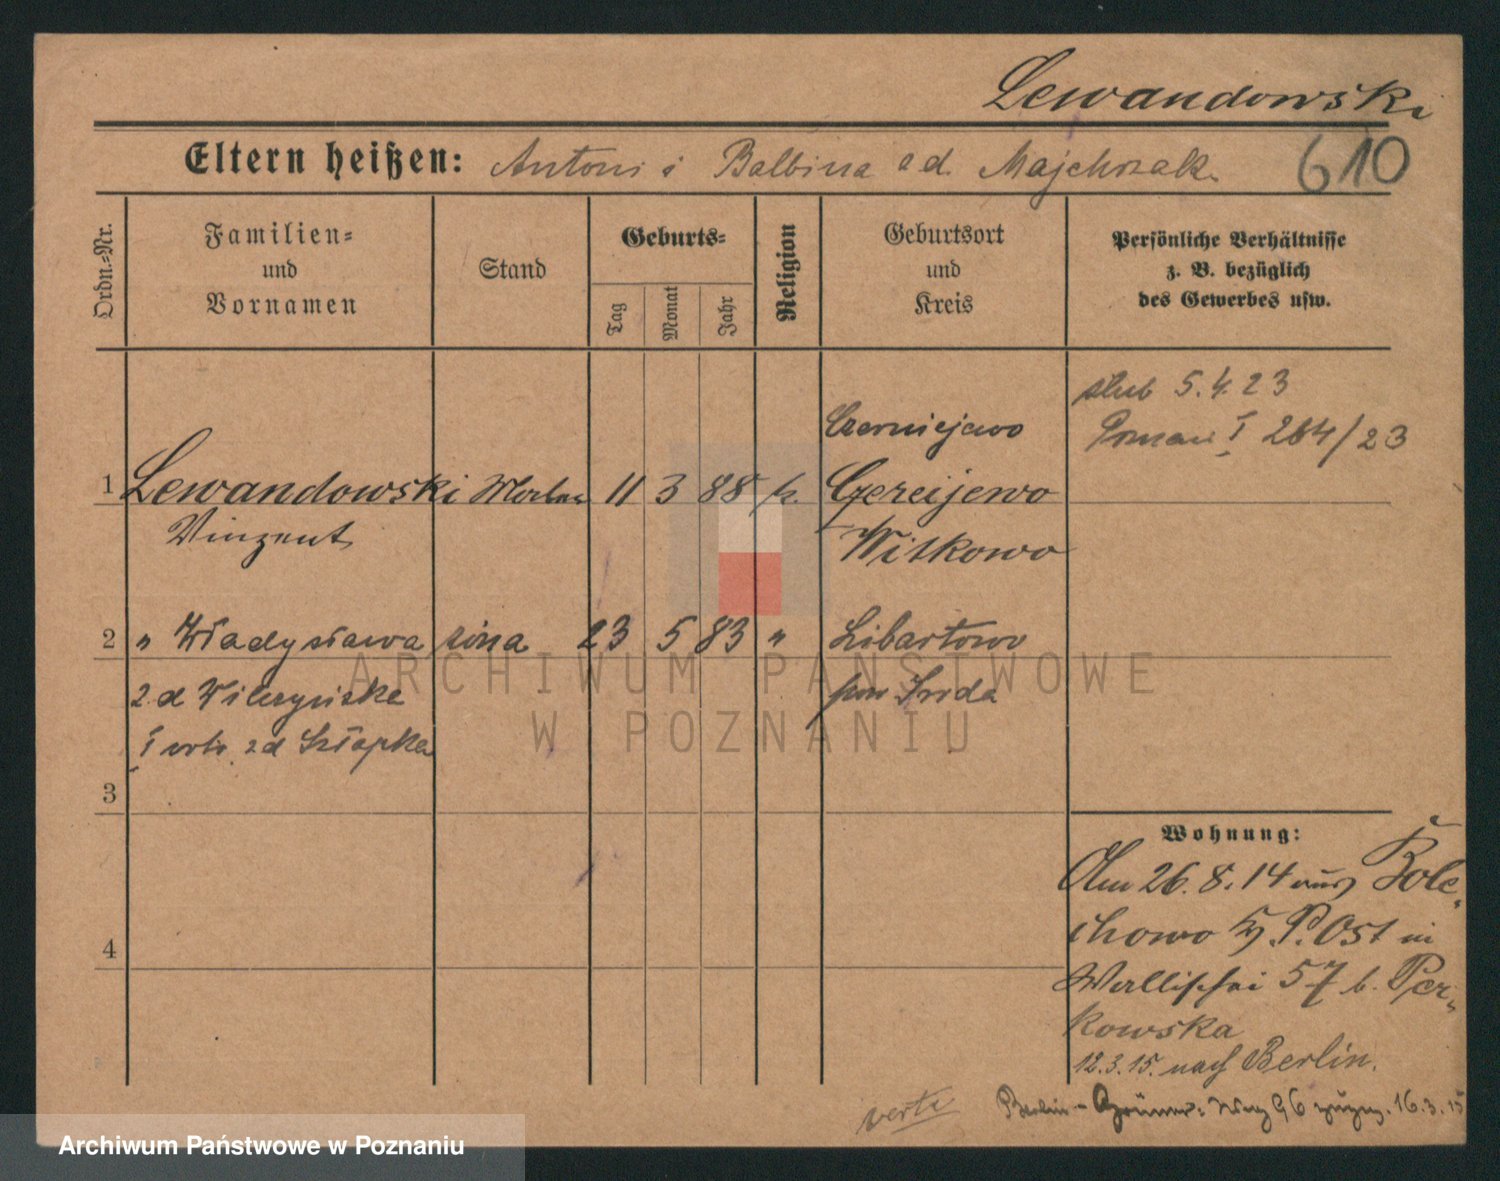 Lewandowski
Eltern heißen: Antoni i Balbina zd. Majchrzak.
610
Ordn.-Nr.
Familien-
und
Vornamen
Stand
Geburts-
Tag
Monat
Jahr
Religion
Geburtsort
und
Kreis
Persönliche Verhältnisse
z. B. bezüglich
des Gewerbes usw.
ślub 5.4.23
Poznań I 264/23
Czerniejewo
1 Lewandowski 11 3 88 k. Gereijewo
Vinzent
Witkowo
2 " Władysława żona 23 5 83 " Libartowo
pow Środa
z d Wilczyńska
I voto zd Szłapka
3
4
Wohnung:
Am 26.8.14 aus Kole-
chowo Kr. P. Ost in
Wallischei 57 b. Per-
kowska
12.3.15. nach Berlin.
verte
Berlin - Weg 96 zuzug. 16.3.15
ARCHIWUM PAŃSTWOWE
W POZNANIU
Archiwum Państwowe w Poznaniu